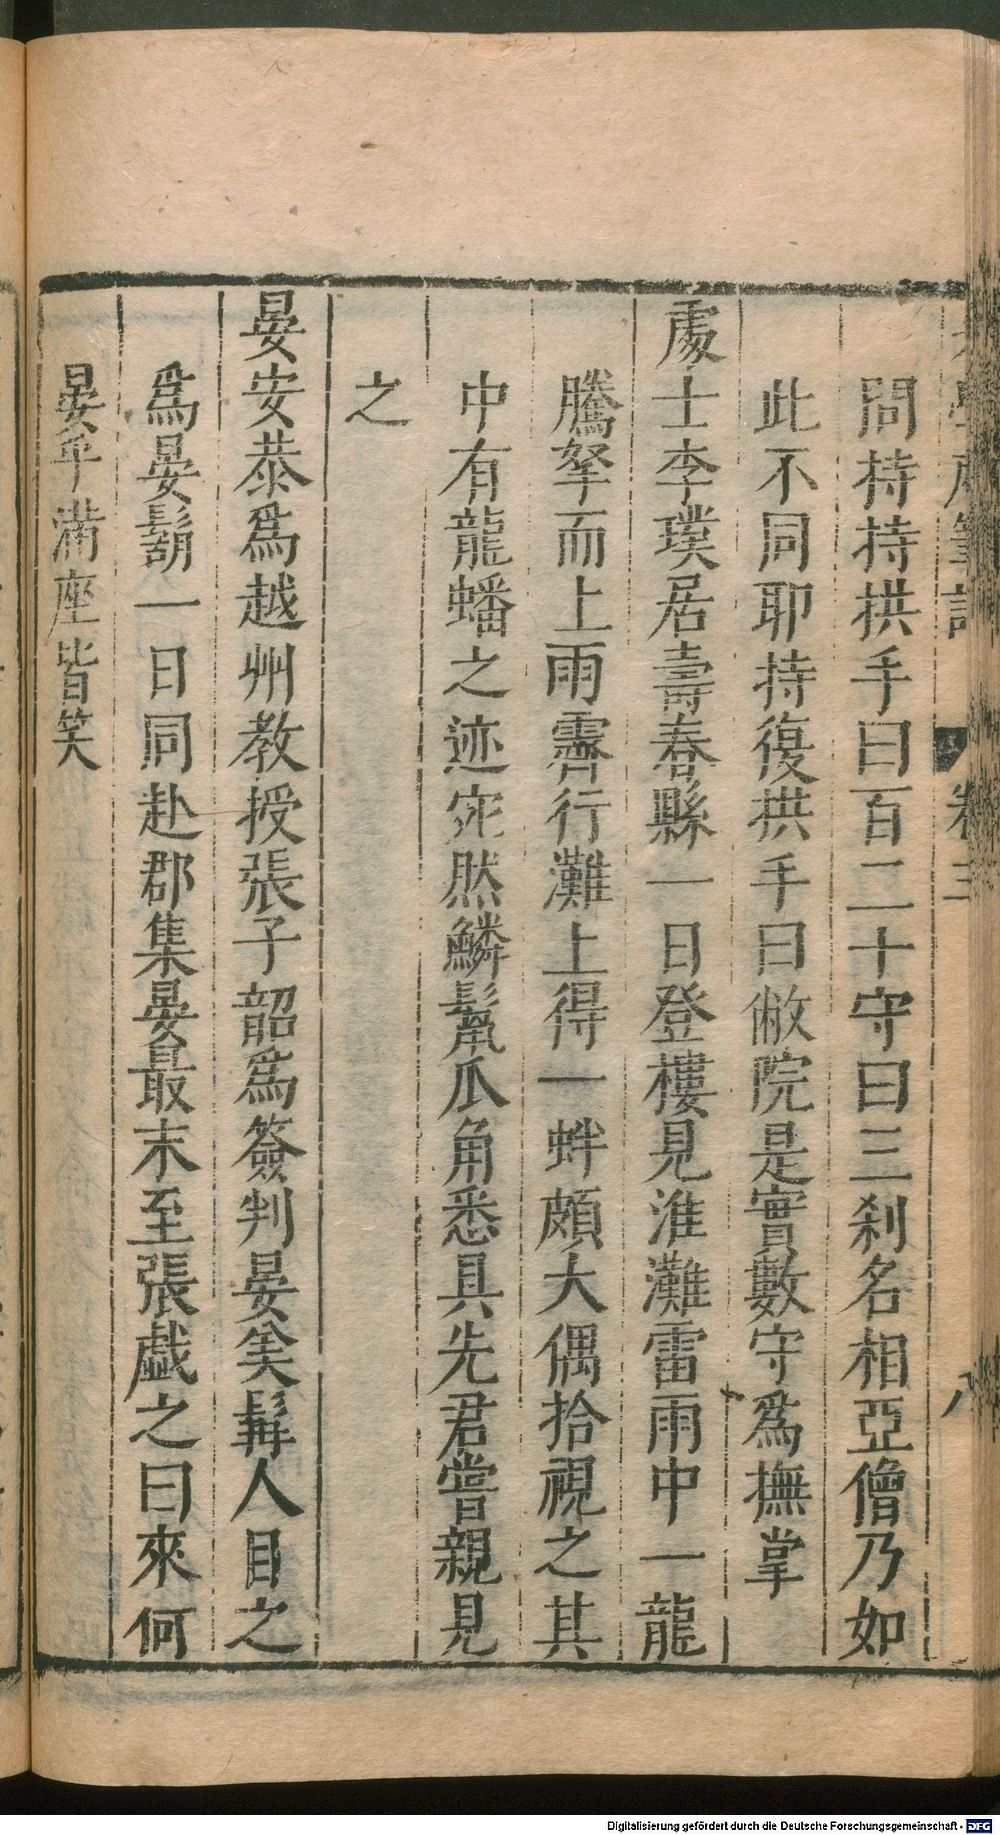 老學庵筆記 卷三 八
問持持拱手曰百二十守曰三刹名相亞僧乃如
此不同耶持復拱手曰敝院是實數守爲撫掌
處士李璞居壽春縣一日登樓見淮灘雷雨中一龍
騰拏而上雨霽行灘上得一蚌頗大偶拾視之其
中有龍蟠之迹宛然鱗鬣爪角悉具先君嘗親見
之
晏安恭爲越州教授張子韶爲簽判晏美髯人目之
爲晏鬍一日同赴郡集晏最末至張戲之曰來何
晏乎滿座皆笑
Digitalisierung gefördert durch die Deutsche Forschungsgemeinschaft - DFG